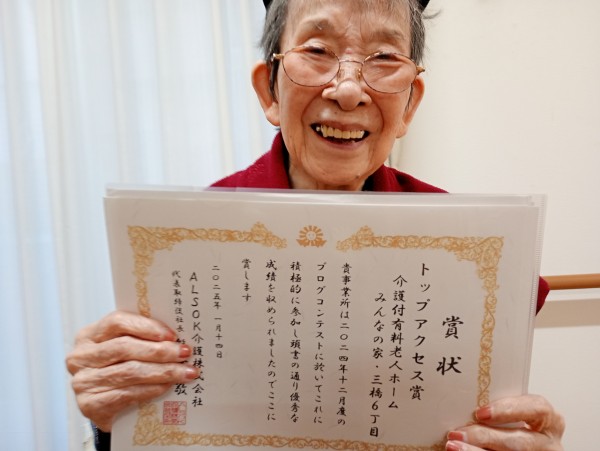 賞状
トップアクセス賞
介護付有料老人ホーム
みんなの家・三橋6丁目
貴事業所は二〇二四年十二月度の
ブログコンテストに於いてこれに
積極的に参加し頭書の通り優秀な
成績を収められましたのでここに
賞します
二〇二五年 一月十四日
ALSOK介護株式会社
代表取締役社長